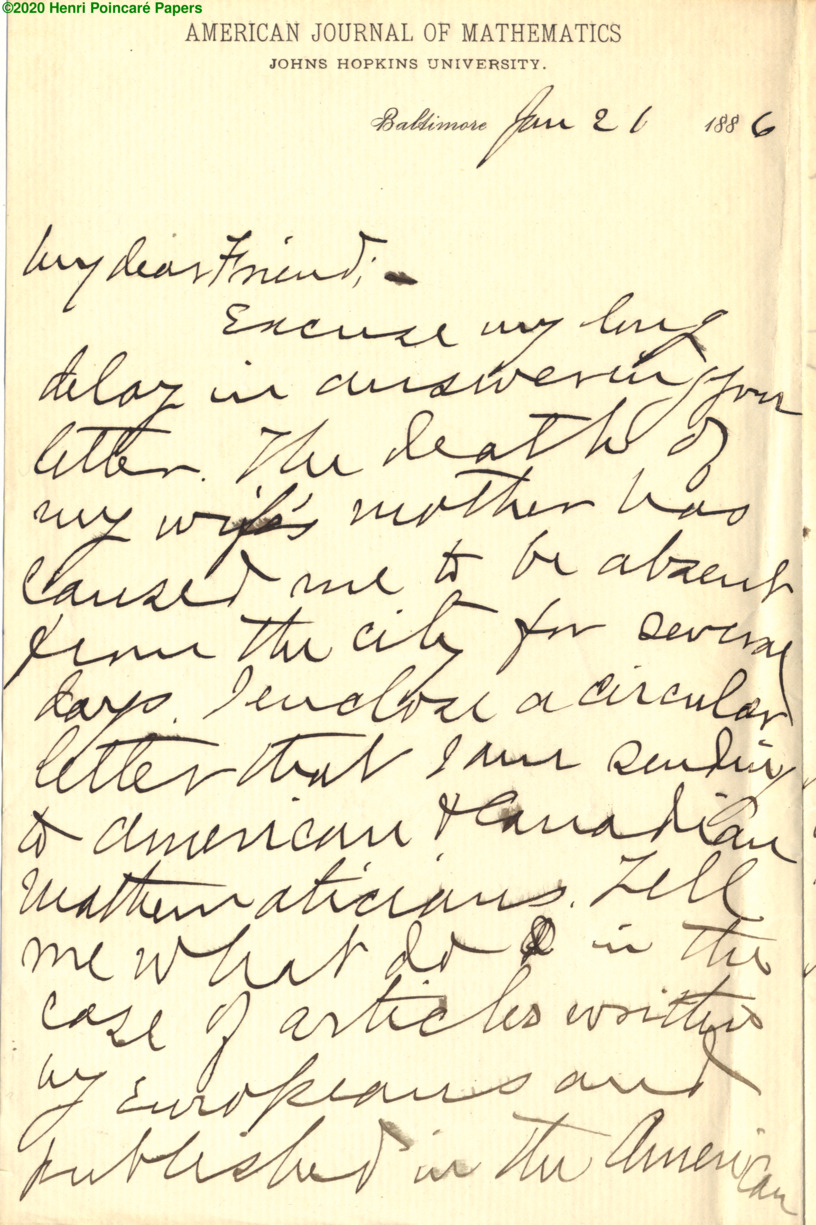 ©2020 Henri Poincaré Papers
AMERICAN JOURNAL OF MATHEMATICS
JOHNS HOPKINS UNIVERSITY.
Baltimore Jan 21 1886
My dear Friend; –
Excuse my long
delay in answering your
letter. The death of
my wife's mother has
caused me to be absent
from the city for several
days. I enclose a circular
letter that I am sending
to American & Canadian
Mathematicians. Tell
me what do I in the
case of articles written
by Europeans and
published in the American